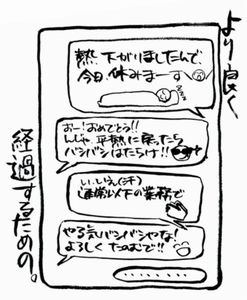 より良く、
熱、下がりましたんで、
今日、休みまーす
おー!おめでとう!!
んじゃ、平熱に戻ったら
バシバシはたらけ!!
い、いけん(汗)
通常以下の業務で
やる気バシバシやな!
よろしくたのむで!!
経過するための。